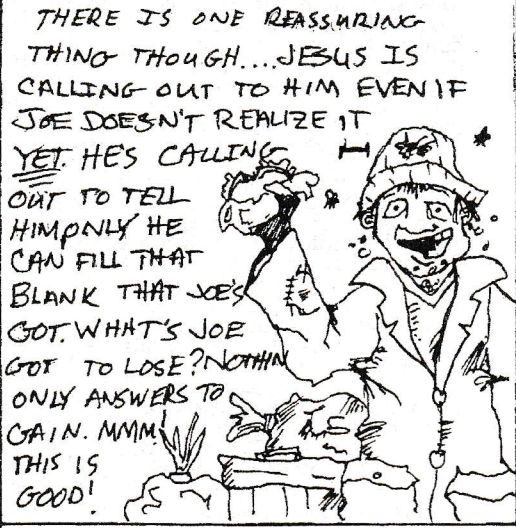 THERE IS ONE REASSURING
THING THOUGH....JESUS IS
CALLING OUT TO HIM EVEN IF
JOE DOESN'T REALIZE IT
YET. HE'S CALLING
OUT TO TELL
HIM ONLY HE
CAN FILL THAT
BLANK THAT JOE'S
GOT. WHAT'S JOE
GOT TO LOSE? NOTHIN
ONLY ANSWERS TO
GAIN. MMM!
THIS IS
GOOD!